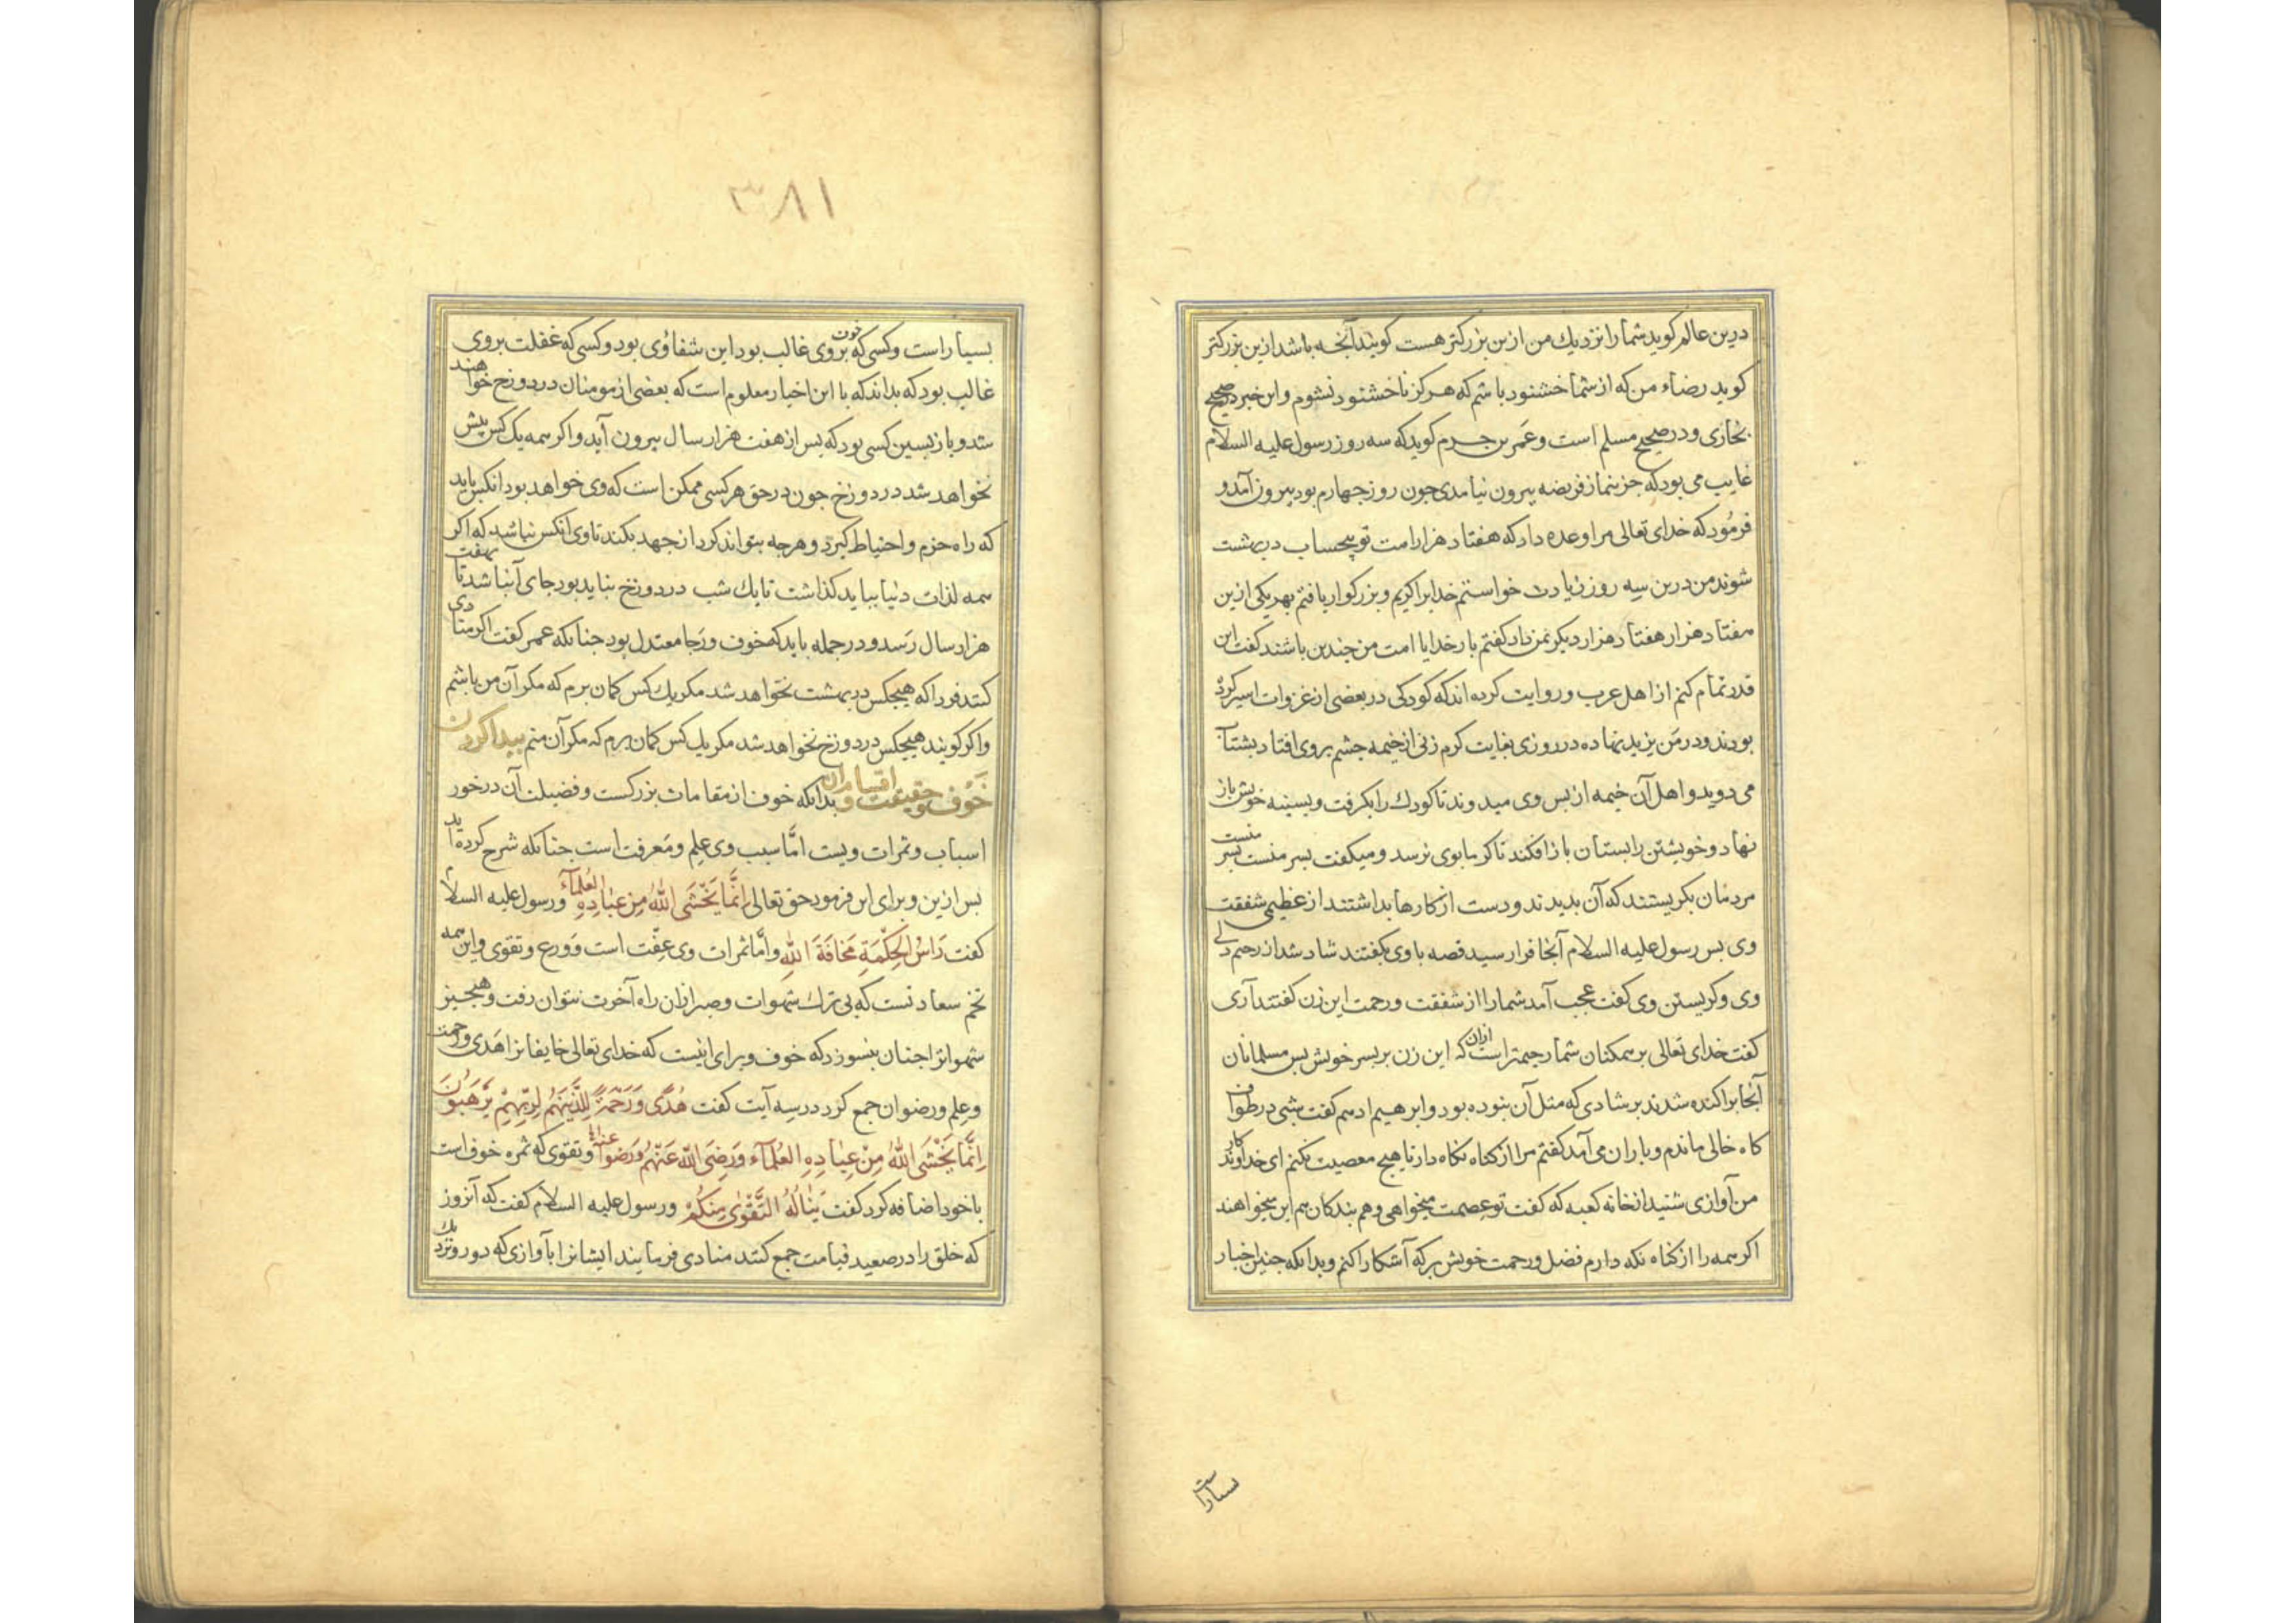 درین عالم کوید شما را نزدیك من ازین بزرکتر هست کویند آنجه باشد ازین بزرکتر
کوید رضاء من که از شما خشنود باشم که هرکز ناخشنود نشوم و این خبر در صحیح
بخاری و در صحیح مسلم است و عمر بن حزم کوید که سه روز رسول علیه السلام
غایب می بود که جز بنماز فریضه بیرون نیامدی جون روز جهارم بود بیرون آمد و
فرمود که خدای تعالی مرا وعده داد که هفتاد هزار امت تو بیحساب در بهشت
شوند من درین سه روز زیادت خواستم خدایرا کریم و بزرکوار یافتم بهر یکی ازین
هفتاد هزار هفتاد هزار دیکر بمن داد کفتم بار خدایا امت من جندین باشند کفت این
قدر تمام کنم از اهل عرب و روایت کرده اند که کودکی در بعضی از غزوات اسیر کرده
بودند و در من یزید نهاده در روزی بغایت کرم زنی از خیمه جشم بروی افتاد بشتاب
می دوید و اهل آن خیمه از بس وی میدوند تا کودك را بکرفت و بسینه خویش باز
نهاد و خویشتن را بستان باز افکند تا کرما بوی نرسد و میکفت بسر منست بسر منست
مردمان بکریستند که آن بدیدند و دست از کارها بداشتند از عظیمی شفقت
وی بس رسول علیه السلام آنجا فرا رسید قصه با وی بکفتند شاد شد از رحیم دلی
وی و کریستن وی کفت عجب آمد شما را از شفقت و رحمت این زن کفتند آری
کفت خدای تعالی بر همکنان شما رحیمتر است ازان که این زن بر بسر خویش بس مسلمانان
آنجا براکنده شدند بر شادی که مثل آن نبوده بود و ابرهیم ادهم کفت شبی در طواف
کاه خالی ماندم و باران می آمد کفتم مرا از کناه نکاه دار تا هیج معصیت نکنم ای خداوند کار
من آوازی شنید از خانه کعبه که کفت تو عصمت میخواهی و هم بندکان هم این میخواهند
اکر همه را از کناه نکه دارم فضل و رحمت خویش بر که آشکارا کنم و بدانکه جنین اخبار
بسیار است
٣٨١
بسیار است و کسی که خوف بر وی غالب بود این شفاء وی بود و کسی که غفلت بر وی
غالب بود که بداند که با این اخبار معلوم است که بعضی از مومنان در دوزخ خواهند
شد و باز بسین کسی بود که بس از هفت هزار سال بیرون آید و اکر همه یک کس بیش
نخواهد شد در دوزخ جون در حق هر کسی ممکن است که وی خواهد بود آنکس باید
که راه حزم و احتیاط کیرد و هرجه بتواند کرد از جهد بکند تا وی آنکس نباشد که اکر
همه لذات دنیا بباید کذاشت تا یك شب در دوزخ نباید بود جای آن باشد تا بهفت
هزار سال رسد و در جمله باید که خوف و رجا معتدل بود جنانکه عمر کفت اکر منادی
کنند فردا که هیجکس در بهشت نخواهد شد مکر یك کس کمان برم که مکر آن من باشم
و اکر کویند هیجکس در دوزخ نخواهد شد مکر یك کس کمان برم که مکر آن منم بیدا کردن
خَوف و حقیقت و اقسام آن بدانکه خوف از مقامات بزرکست و فضیلت آن در خور
اسباب و ثمرات ویست امَّا سبب وی علم و معرفت است جنانکه شرح کرده اید
بس ازین و برای این فرمود حق تعالی اِنَّمَا یَخْشَی اللهَ مِن عِبادِهِ العُلمآءُ و رسول علیه السلام
کفت رَاسُ الحِکْمَةِ مَخافَةُ اللهِ و اما ثمرات وی عِفَّت است و وَرع و تقوی و این همه
تخم سعادتست که بی ترك شهوات و صبر ازان راه آخرت نتوان رفت و هیجیز
شهوات را جنان بنسوزد که خوف و برای اینست که خدای تعالی خایفانرا هُدی و رحمت
و علم و رضوان جمع کرد در سه آیت کفت هُدًی وَ رَحْمَةٌ لِلَّذینَ هُم لِرَبِّهِمْ یَرْهَبُونَ
اِنَّمَا یَخْشَی اللهَ مِنْ عِبادِهِ العُلمآء وَ رَضِیَ الله عَنْهُم وَ رَضُوا عنه و تقوی که ثمره خوف است
با خود اضافه کرد کفت یَنالُهُ التَّقْوٰی مِنکُمْ و رسول علیه السلام کفت که آنروز
که خلق را در صعید قیامت جمع کنند منادی فرمایند ایشانرا بآوازی که دور و نزدیك